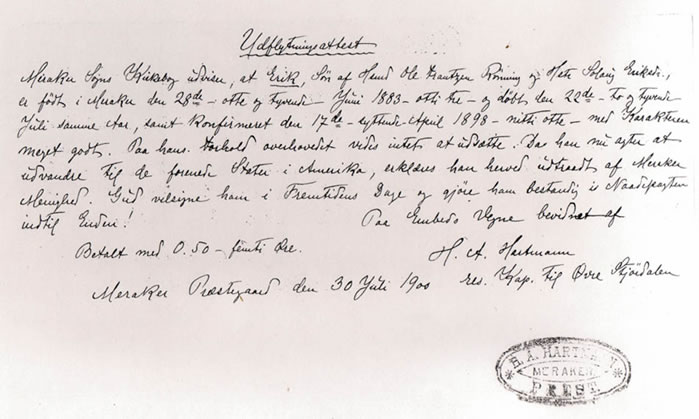 Udflytningsattest
Meraker Sogns Kirkebog udviser, at Erik, Søn af Hmd Ole Frantzen Rønning og Htr Solvig Eriksdr.,
er født i Meraker den 28de - otte og tyvende Juni 1883 - otti tre - og døbt den 22de - to og tyvende
Juli samme Aar, samt konfirmeret den 17de - syttende April 1898 - nitti otte - med Karakteren
meget godt. Paa hans Forhold overhovedet vides intet at udsætte. Da han nu agter at
udvandre til de forenede Stater i Amerika, erklæres han herved udtraadt af Meraker
Menighed. Gud velsigne ham i Fremtidens Dage og gjøre ham bestandig i Naadepagten
indtil Enden!
Paa Embeds Vegne bevidnet af
Betalt med 0.50 - femti Øre.
H. A. Hartmann
res. Kap. til Øvre Stjördalen
Meraker Præstegaard den 30 Juli 1900
H. A. HARTMANN
MERAKER
PREST